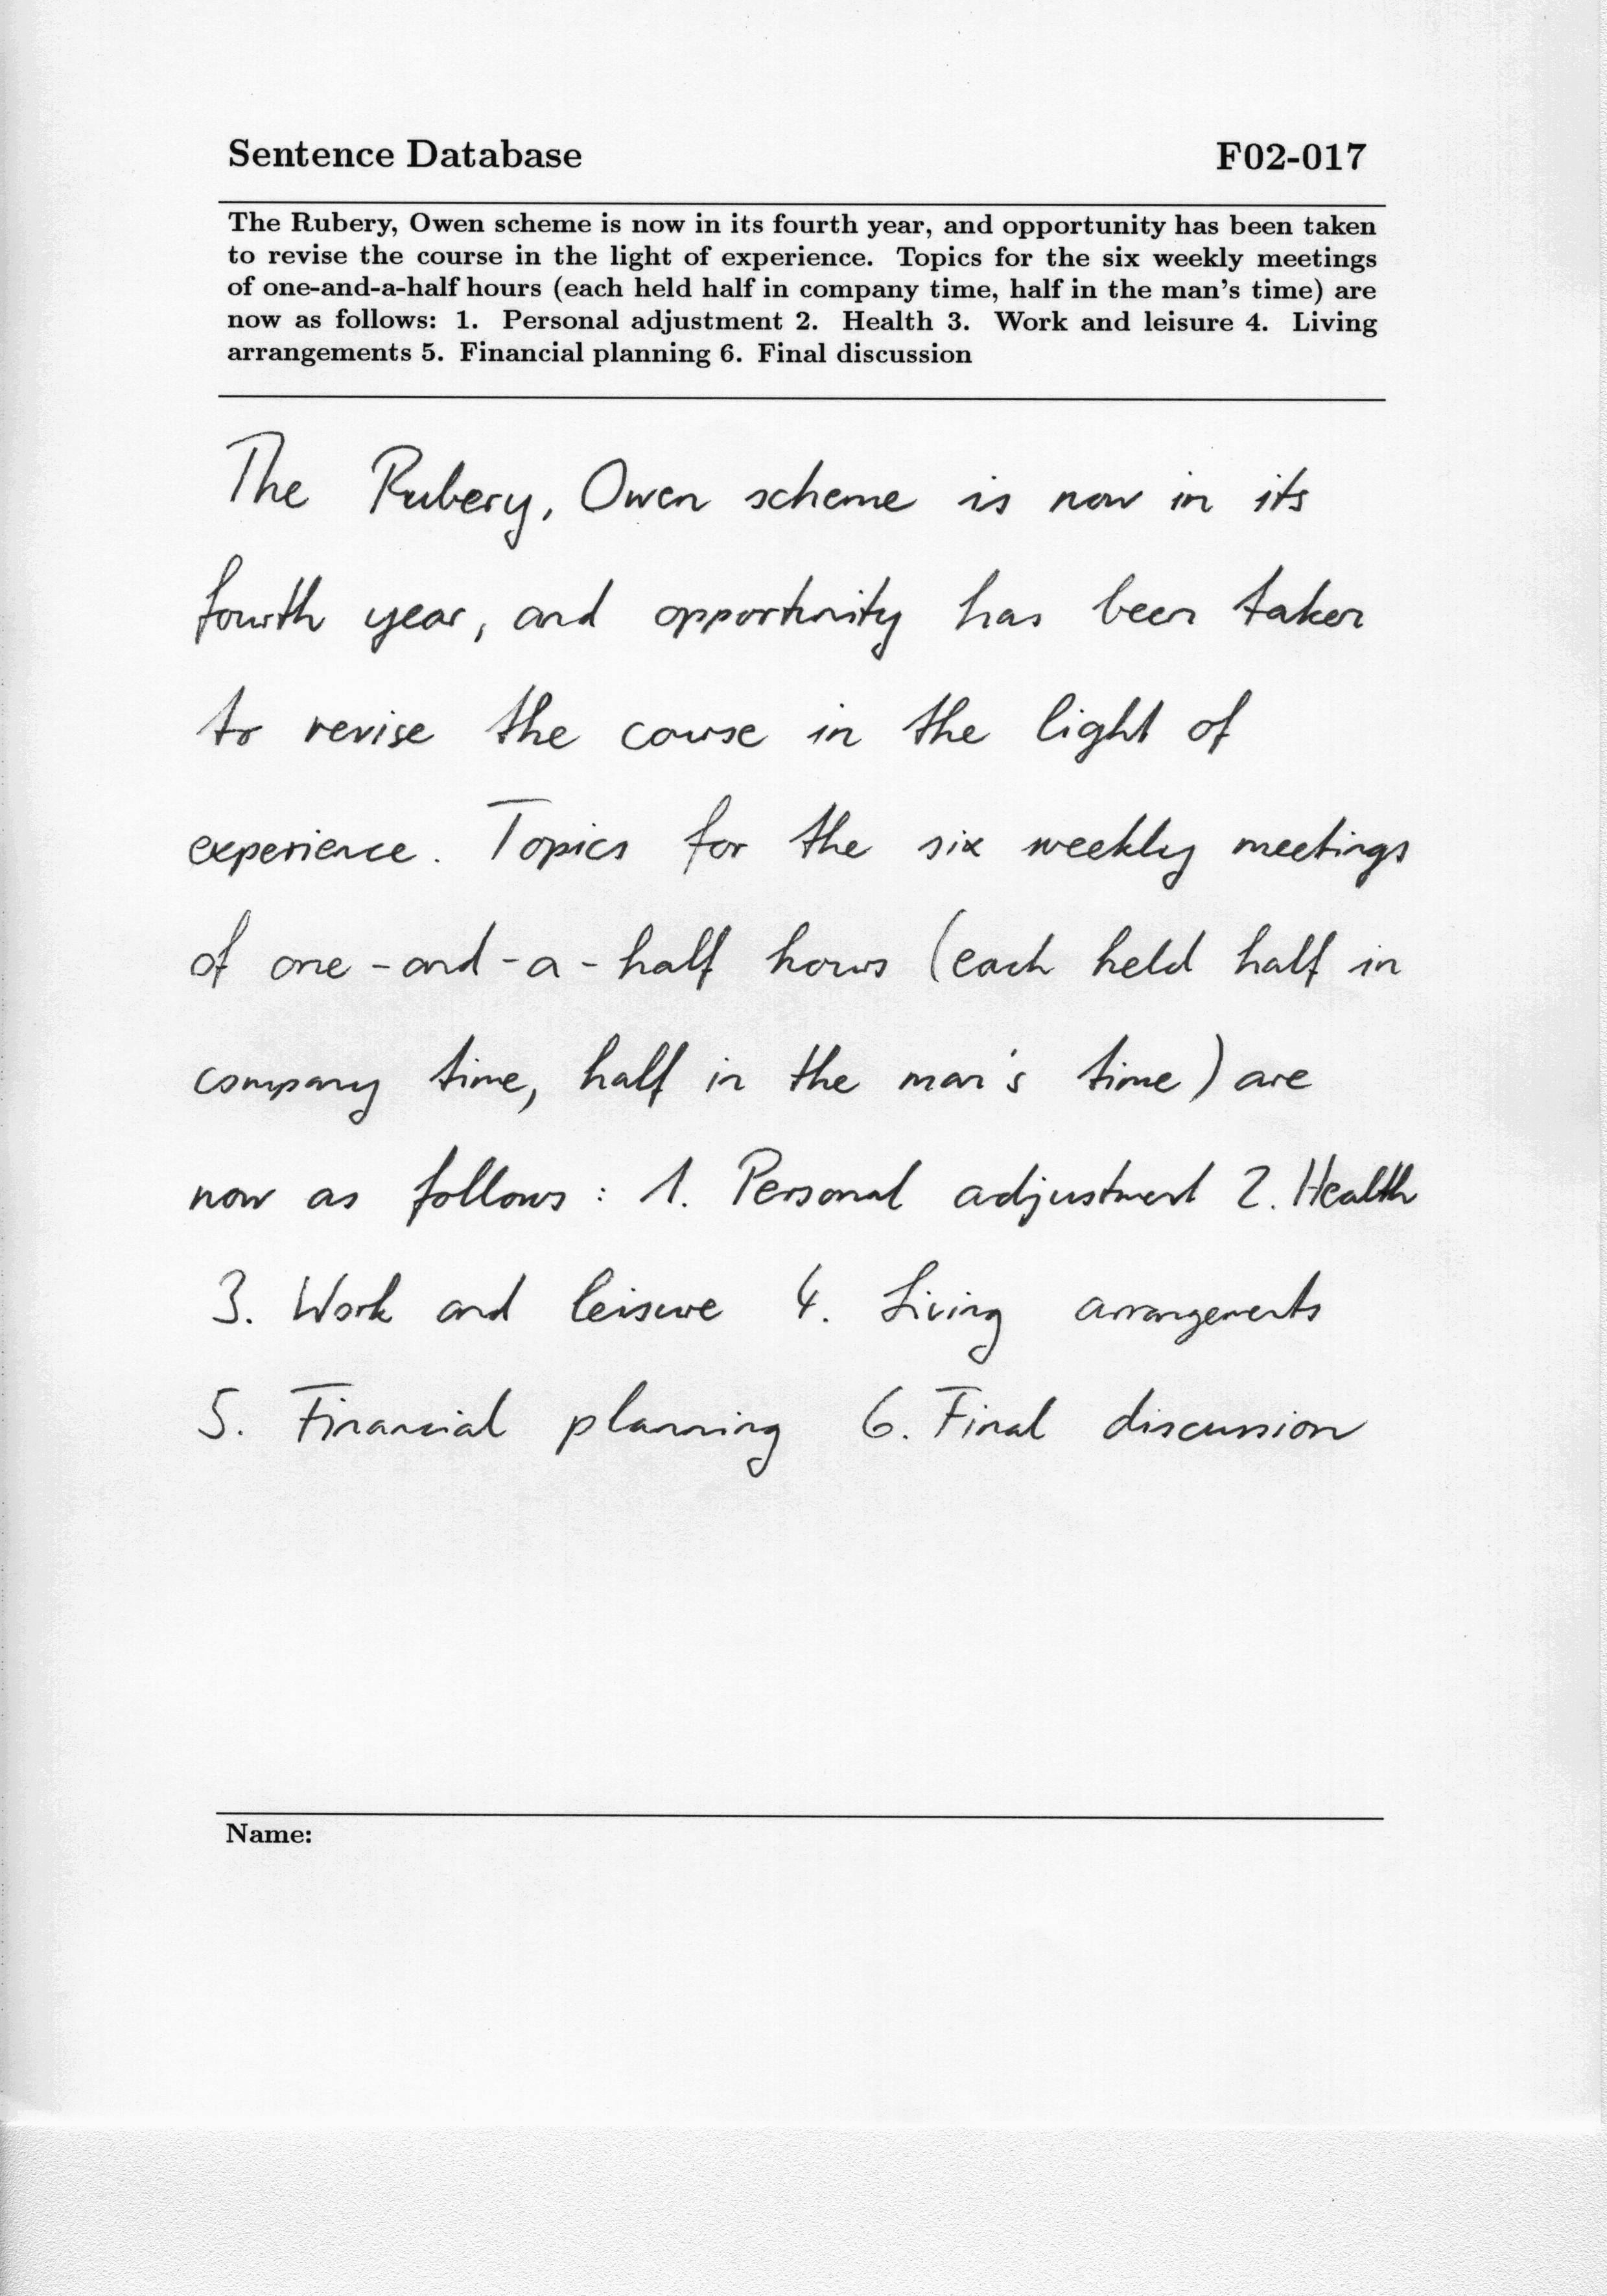 Sentence Database F02-017
The Rubery, Owen scheme is now in its fourth year, and opportunity has been taken
to revise the course in the light of experience. Topics for the six weekly meetings
of one-and-a-half hours (each held half in company time, half in the man's time) are
now as follows: 1. Personal adjustment 2. Health 3. Work and leisure 4. Living
arrangements 5. Financial planning 6. Final discussion
The Rubery, Owen scheme is now in its
fourth year, and opportunity has been taken
to revise the course in the light of
experience. Topics for the six weekly meetings
of one-and-a-half hours (each held half in
company time, half in the man's time) are
now as follows: 1. Personal adjustment 2. Health
3. Work and leisure 4. Living arrangements
5. Financial planning 6. Final discussion
Name: